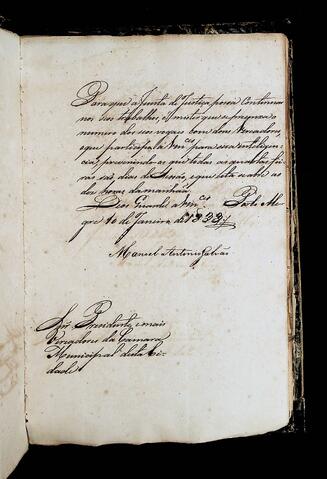 Para que a Junta de Justiça possa continuar
nos seus trabalhos, é mister que se preencha o
numero dos seus vogaes com dous Vereadores,
o que participo a V.mces para sua intelligen-
cia, prevenindo-os que todas as quartas fei-
ras são dias de Sessão, que terá as
dez horas da manhãa.
Deos Guarde a V.mces Porto Ale-
gre 10 de Janeiro de 1833
Manoel Antonio Galvão
Snr. Presidente, e mais
Vereadores da Camara
Municipal desta Ci-
dade